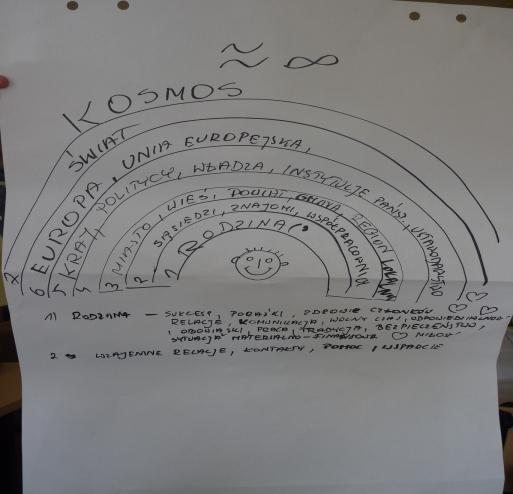 ≈ ∞
KOSMOS
ŚWIAT
EUROPA, UNIA EUROPEJSKA,
KRAJ, POLITYCY, WŁADZA, INSTYTUCJE PAŃSTW, USTAWODAWSTWO
MIASTO, WIEŚ, POWIAT, GMINA, REGION
SĄSIEDZI, ZNAJOMI, WSPÓŁPRACOWNICY
RODZINA
7
6
5
4
3
2
1
1) RODZINA – SUKCESY, PORAŻKI, ZDROWIE CZŁONKÓW
RELACJE, KOMUNIKACJA, WOLNY CZAS, ODPOWIEDZIALNOŚĆ
, OBOWIĄZKI, PRACA, TRADYCJA, BEZPIECZEŃSTWO,
SYTUACJA MATERIALNO-FINANSOWA ♡ MIŁOŚĆ
2 WZAJEMNE RELACJE, KONTAKTY, POMOC, WSPARCIE